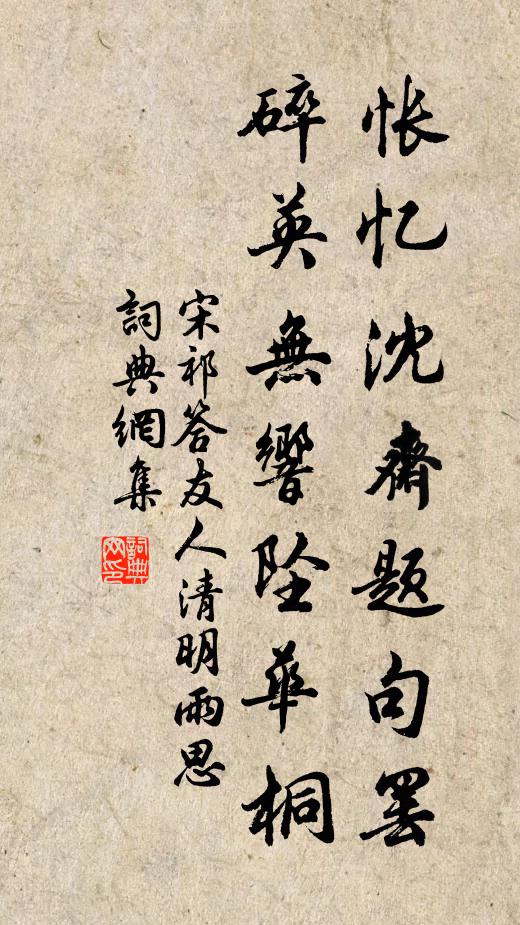 怅忆沈齋题句罢
碎英無響坠華桐
宋祁答友人清明雨思
詞典網集
詞典网印